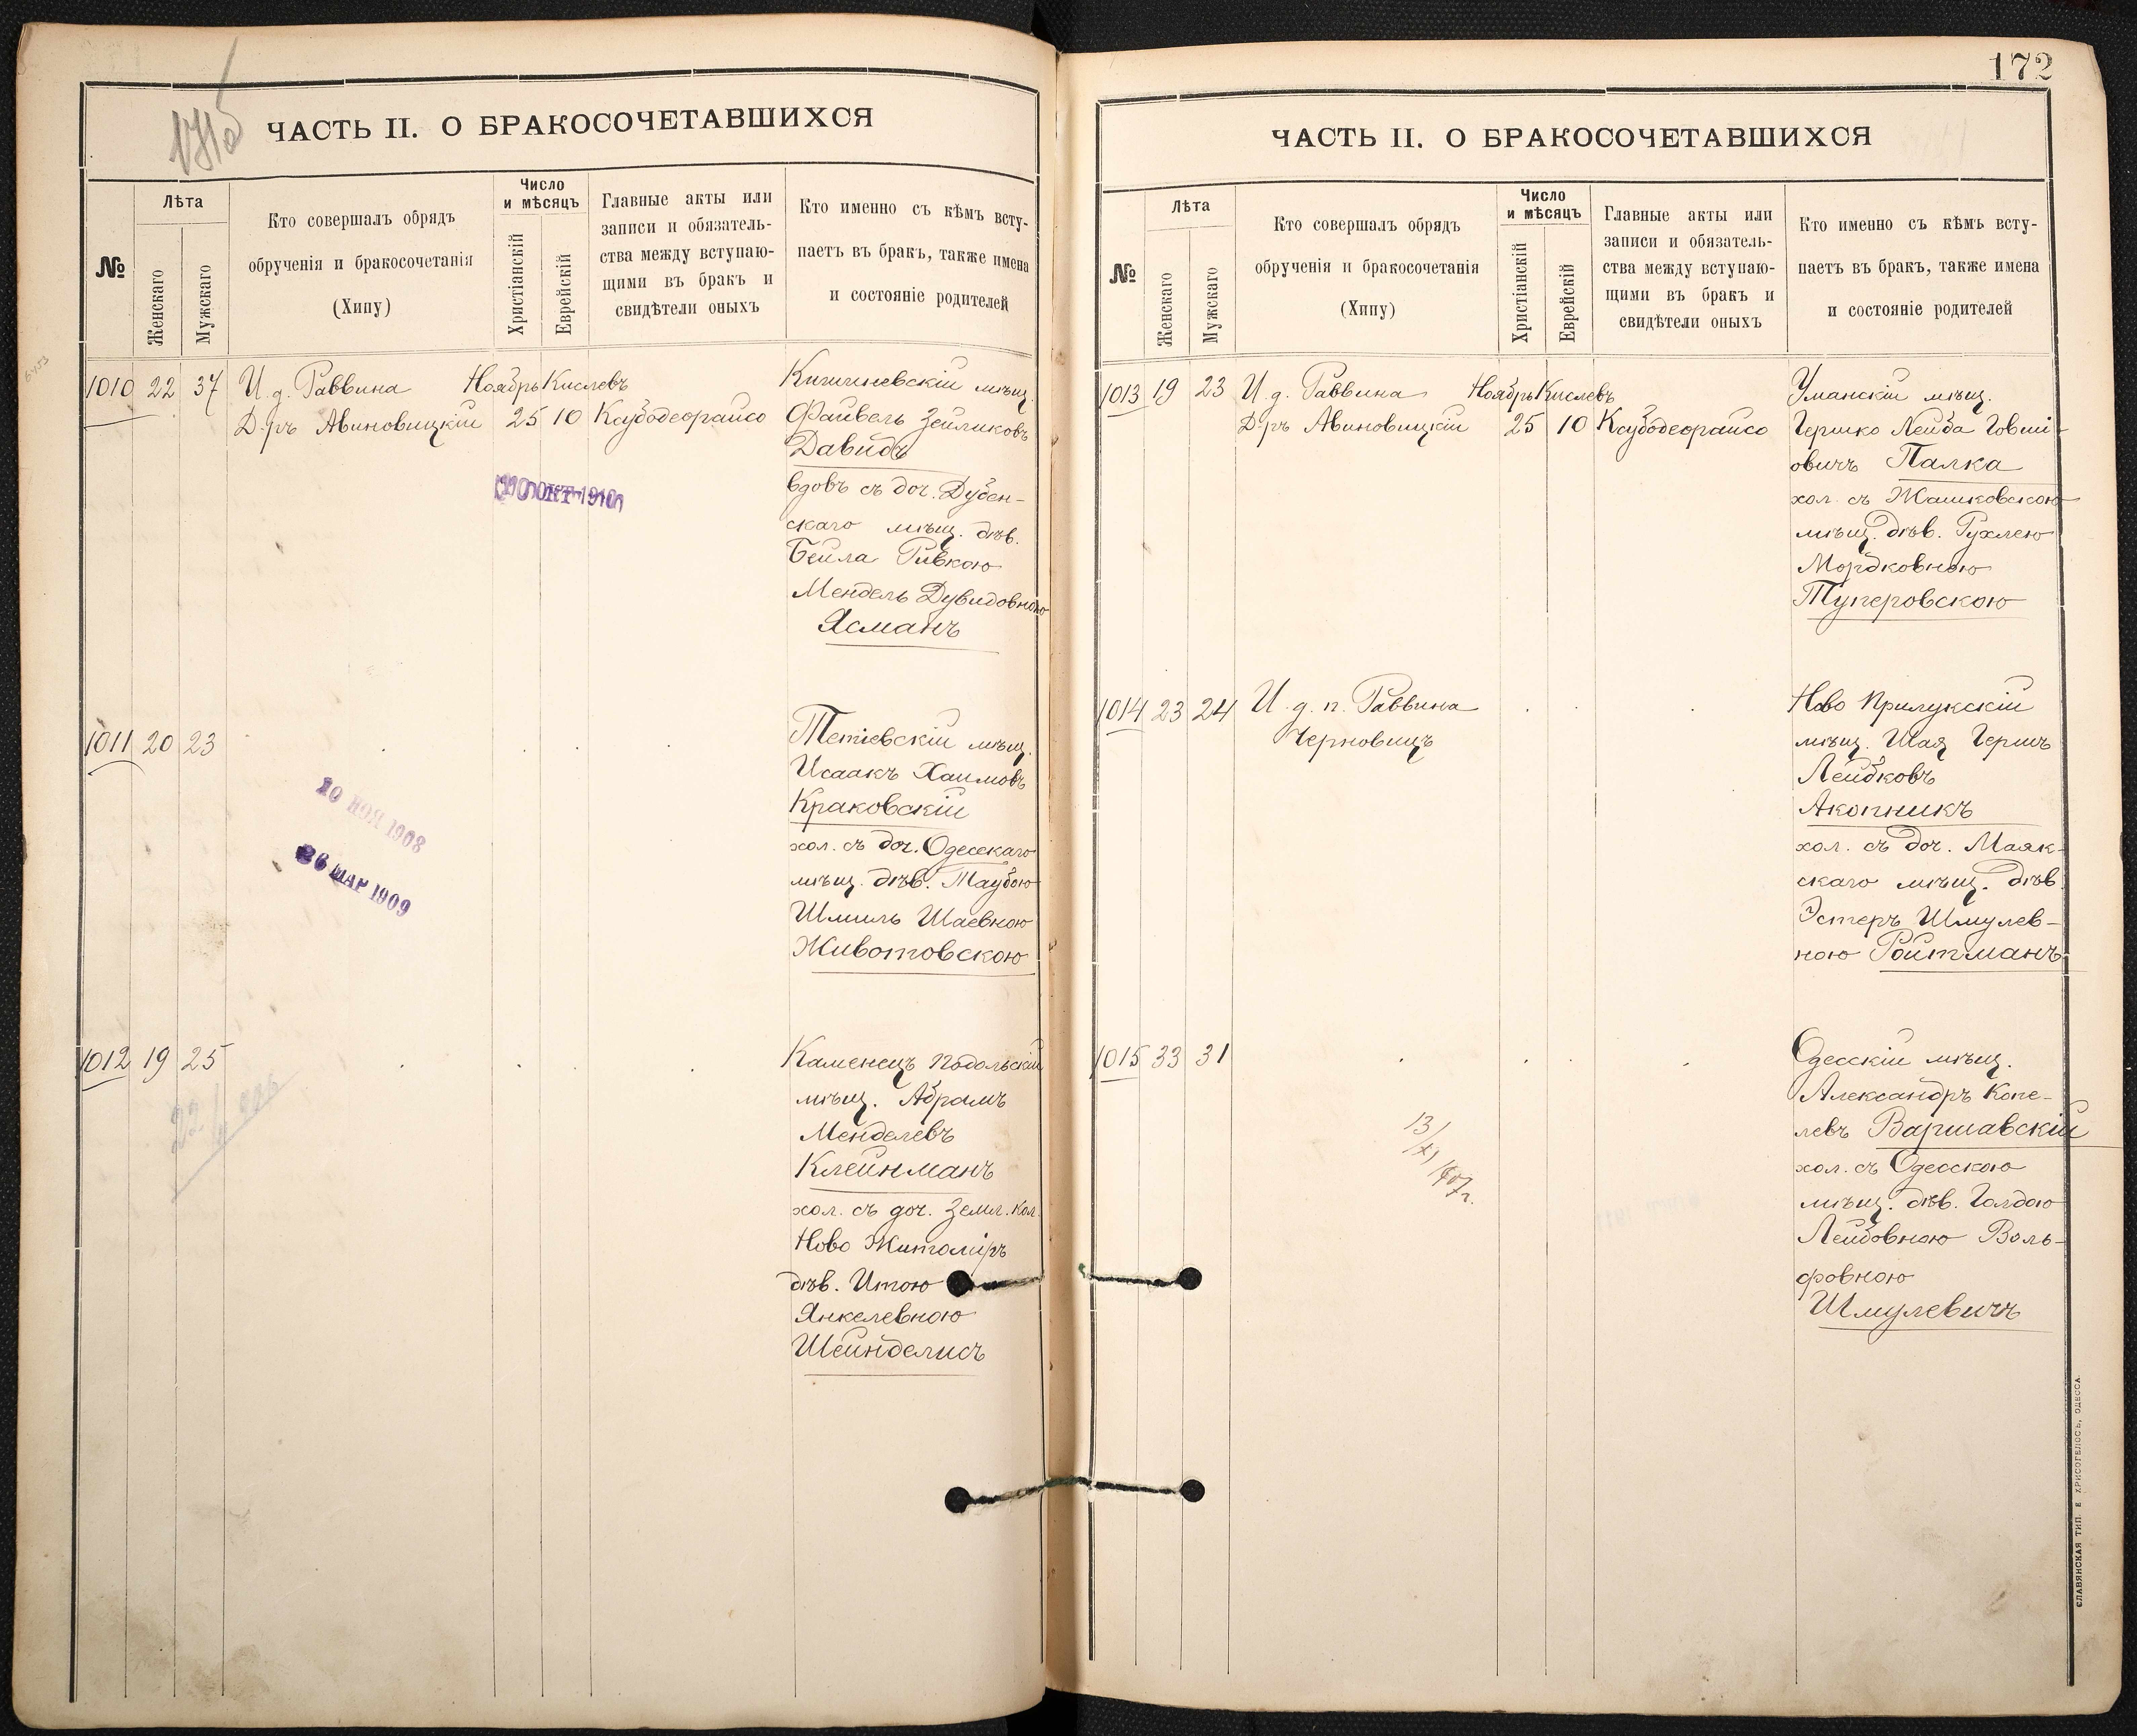 171б
ЧАСТЬ II. О БРАКОСОЧЕТАВШИХСЯ
№
Лѣта
Женскаго
Мужскаго
Кто совершалъ обрядъ
обрученія и бракосочетанія
(Хипу)
Число
и мѣсяцъ
Христіанскій
Еврейскій
Главные акты или
записи и обязатель-
ства между вступаю-
щими въ бракъ и
свидѣтели оныхъ
Кто именно съ кѣмъ всту-
паетъ въ бракъ, также имена
и состояніе родителей
1010 22 37 И. д. Раввина Ноябрь Кислевъ
Д-ръ Авиновицкій 25 10 Ксубодеорайсо
Кишиневскій мѣщ.
Файвель Зейликовъ
Давидъ
вдовъ съ доч. Дубен-
скаго мѣщ. дѣв.
Бейла Ривкою
Мендель Дувидовною
Ясманъ
ОКТ 1910
1011 20 23
Тетіевскій мѣщ.
Исаакъ Хаимовъ
Краковскій
хол. съ доч. Одесскаго
мѣщ. дѣв. Таубою
Шмиль Шаевною
Животовскою
20 НОЯ 1908
26 МАР 1909
1012 19 25
Каменецъ Подольскій
мѣщ. Абрамъ
Менделевъ
Клейнманъ
хол. съ доч. Земл. Кол.
Ново Житоміръ
дѣв. Итою
Янкелевною
Шейнделисъ
172
ЧАСТЬ II. О БРАКОСОЧЕТАВШИХСЯ
№
Лѣта
Женскаго
Мужскаго
Кто совершалъ обрядъ
обрученія и бракосочетанія
(Хипу)
Число
и мѣсяцъ
Христіанскій
Еврейскій
Главные акты или
записи и обязатель-
ства между вступаю-
щими въ бракъ и
свидѣтели оныхъ
Кто именно съ кѣмъ всту-
паетъ въ бракъ, также имена
и состояніе родителей
1013 19 23 И. д. Раввина Ноябрь Кислевъ
Д-ръ Авиновицкій 25 10 Ксубодеорайсо
Уманскій мѣщ.
Гершко Лейба Іовші-
овичъ Палка
хол. съ Жашковскою
мѣщ. дѣв. Рухлею
Мордковною
Туперовскою
1014 23 24 И. д. п. Раввина
Черновицъ
Ново Прилукскій
мѣщ. Шая Гершъ
Лейбковъ
Акопникъ
хол. съ доч. Маяк-
скаго мѣщ. дѣв.
Эстеръ Шмулев-
ною Ройтманъ
1015 33 31
Одесскій мѣщ.
Александръ Копе-
левъ Варшавскій
хол. съ Одесскою
мѣщ. дѣв. Голдою
Лейбовною Воль-
фовною
Шмулевичъ
13/XI 1907 г.
СЛАВЯНСКАЯ ТИП. Е ХРИСОГЕЛОСЪ, ОДЕССА.